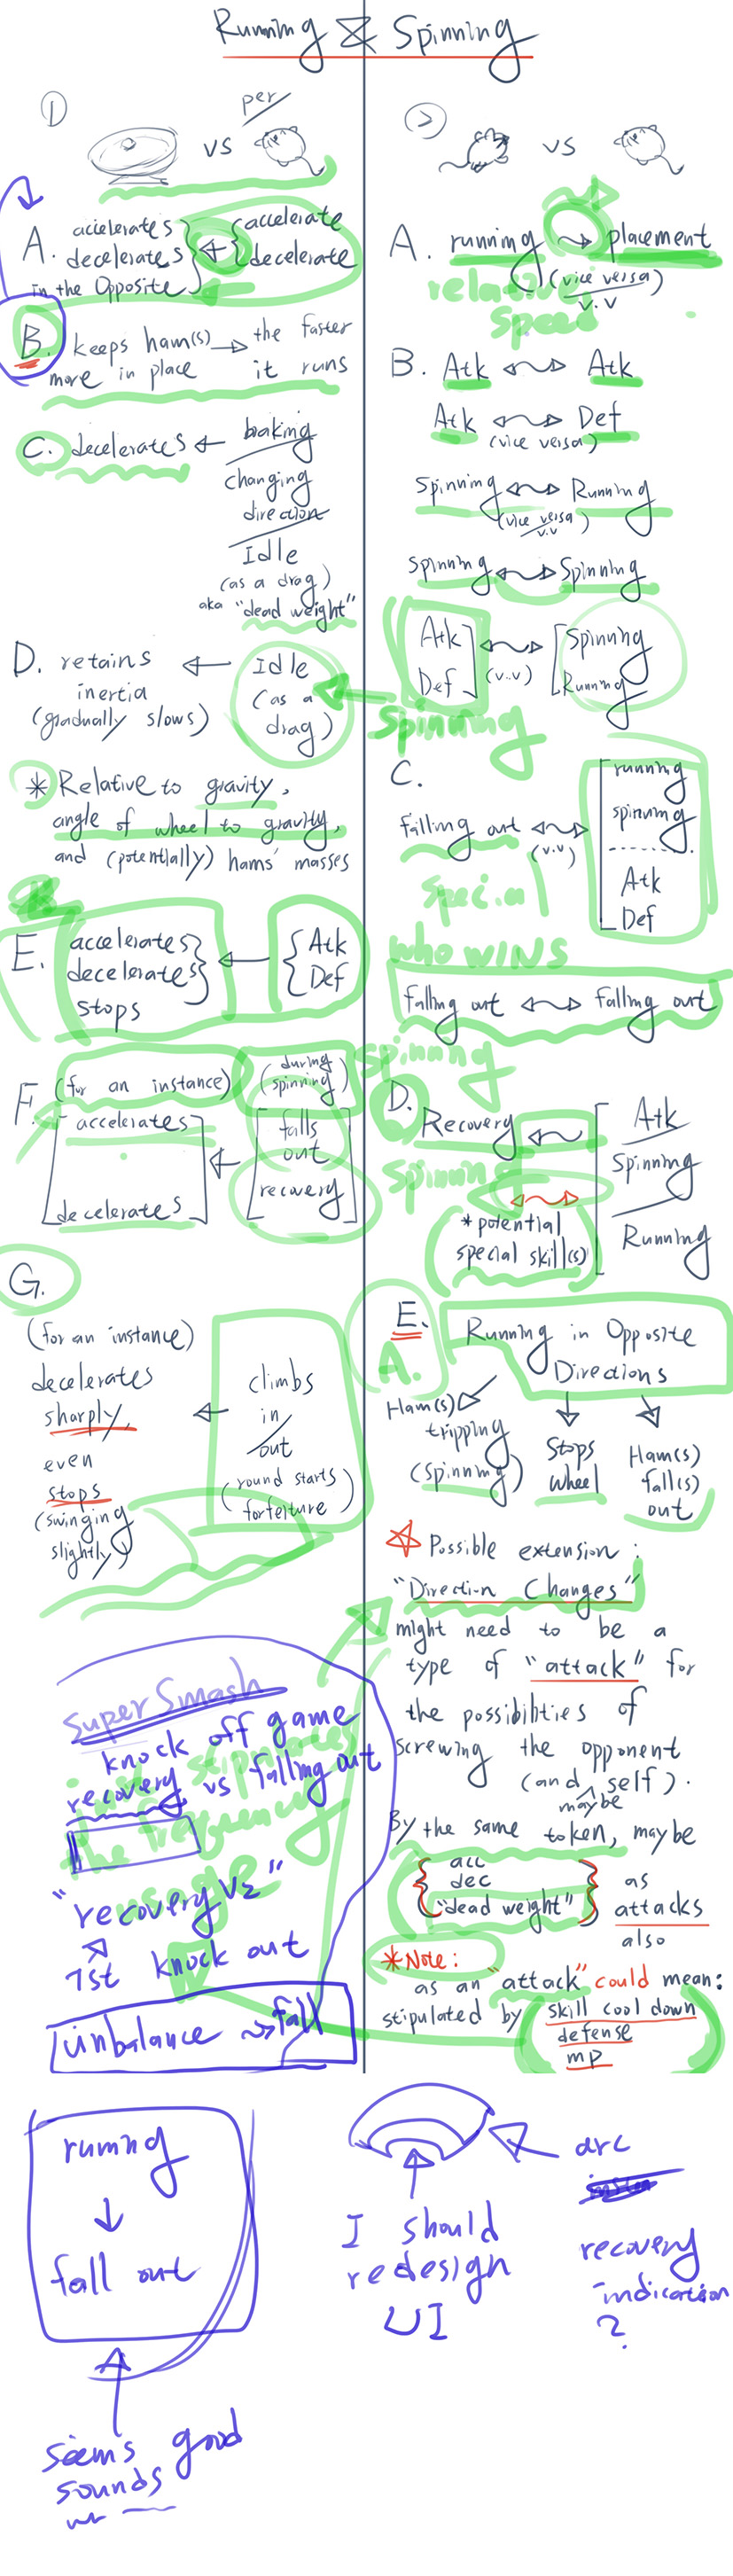 Running & Spinning
①
vs
per
A. accelerates
decelerates
in the Opposite
accelerate
decelerate
B. keeps ham(s) → the faster
more in place it runs
C. decelerates ← braking
changing
direction
Idle
(as a drag)
aka "dead weight"
D. retains ← Idle
inertia (as a
(gradually slows) drag)
* Relative to gravity,
angle of wheel to gravity,
and (potentially) hams' masses
E. accelerates
decelerates
stops
← Atk
Def
F. (for an instance)
accelerates
decelerates
← (during
spinning)
falls
out
recovery
G.
(for an instance)
decelerates
sharply,
even
stops
(swinging
slightly)
← climbs
in/
out
(round starts
forfeiture)
Super Smash
knock off game
recovery vs falling out
"recovery V2"
1st knock out
unbalance → fall
stipulates
the frequency
usage
②
vs
A. running placement
(vice versa)
v.v
relative
speed
B. Atk Atk
Atk Def
(vice versa)
Spinning Running
(vice versa)
v.v
Spinning Spinning
Atk
Def
(v.v)
Spinning
Running
Spinning
C.
falling out
(v.v)
running
spinning
Atk
Def
Special
who wins
falling out falling out
Spinning
D.
Recovery
Atk
Spinning
Running
Spinning
*potential
special skill(s)
E.
A.
Running in Opposite
Directions
Ham(s)
tripping
(spinning)
Stops
wheel
Ham(s)
fall(s)
out
☆ Possible extension:
"Direction Changes"
might need to be a
type of "attack" for
the possibilities of
screwing the opponent
(and maybe self).
By the same token, maybe
acc
dec
"dead weight"
as
attacks
also
*Note:
as an "attack" could mean:
stipulated by skill cool down
defense
mp
running
↓
fall out
seems good
sounds
I should
redesign
UI
arc
recovery
indication
?